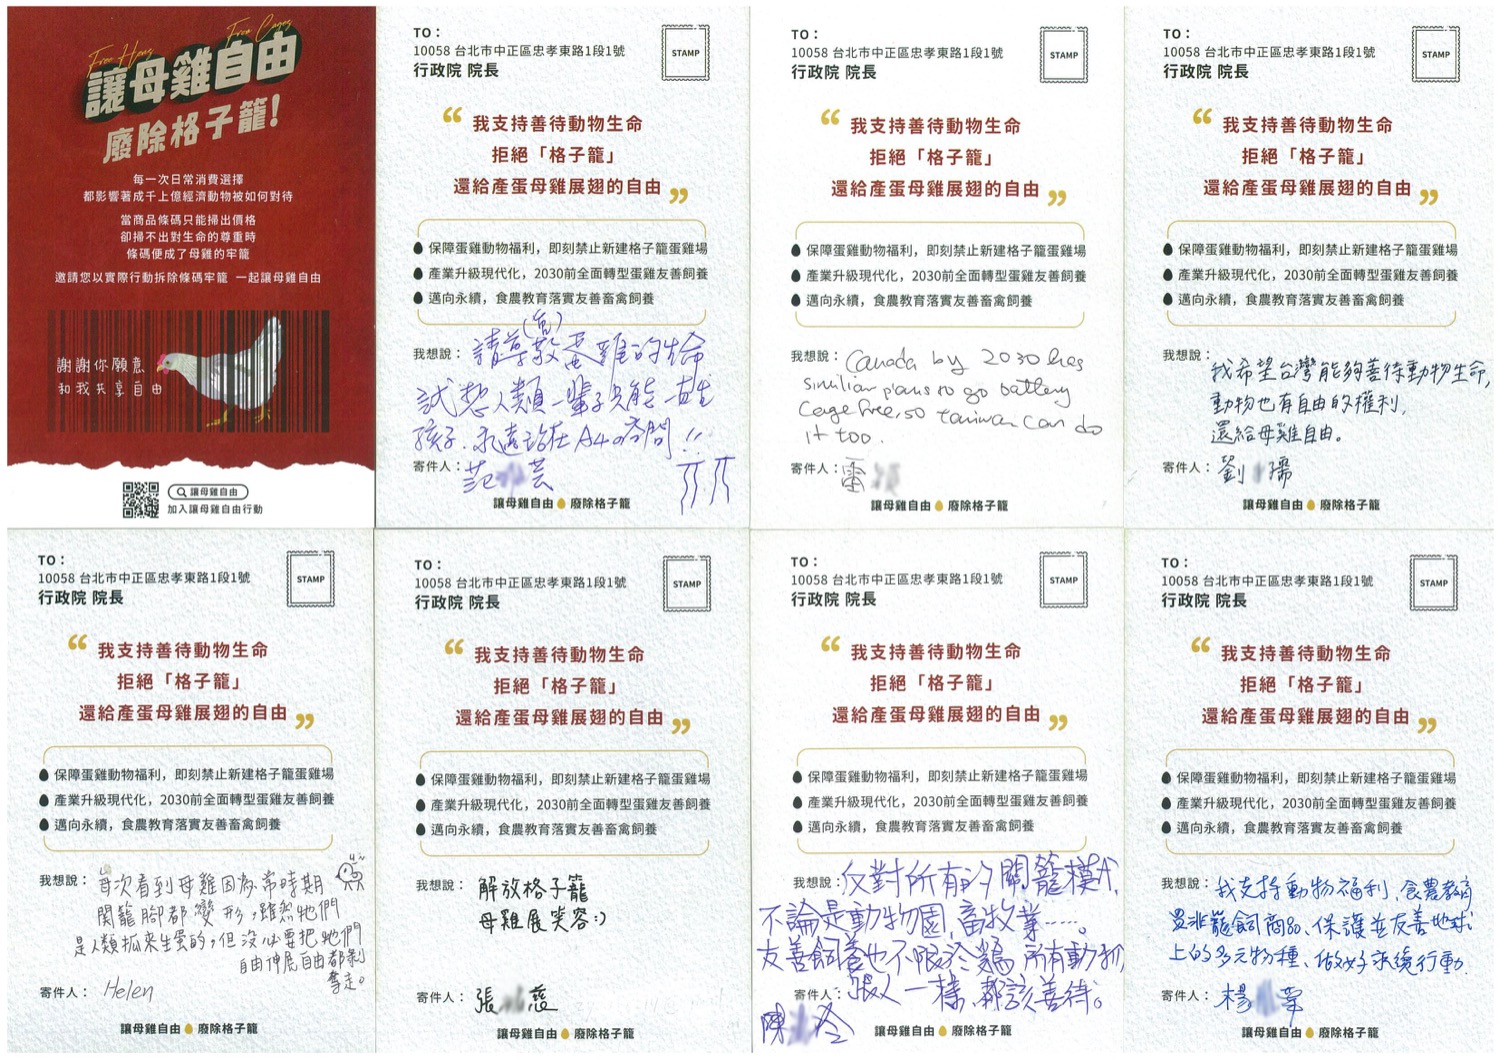 Free Hens
Free Cages
讓母雞自由
廢除格子籠!
每一次日常消費選擇
都影響著成千上億經濟動物被如何對待
當商品條碼只能掃出價格
卻掃不出對生命的尊重時
條碼便成了母雞的牢籠
邀請您以實際行動拆除條碼牢籠 一起讓母雞自由
謝謝你願意
和我共享自由
讓母雞自由
加入讓母雞自由行動
TO：
10058 台北市中正區忠孝東路1段1號
行政院 院長
STAMP
“ 我支持善待動物生命
拒絕「格子籠」
還給產蛋母雞展翅的自由 ”
保障蛋雞動物福利，即刻禁止新建格子籠蛋雞場
產業升級現代化，2030前全面轉型蛋雞友善飼養
邁向永續，食農教育落實友善畜禽飼養
我想說：請尊(高)敬蛋雞的生命
試想人類一輩子只能一直生
孩子.永遠站在A4的空間!!
寄件人：范 芸
讓母雞自由 廢除格子籠
TO：
10058 台北市中正區忠孝東路1段1號
行政院 院長
STAMP
“ 我支持善待動物生命
拒絕「格子籠」
還給產蛋母雞展翅的自由 ”
保障蛋雞動物福利，即刻禁止新建格子籠蛋雞場
產業升級現代化，2030前全面轉型蛋雞友善飼養
邁向永續，食農教育落實友善畜禽飼養
我想說：Canada by 2030 has
similiar plans to go battery
cage free, so taiwan can do
it too.
寄件人：雷
讓母雞自由 廢除格子籠
TO：
10058 台北市中正區忠孝東路1段1號
行政院 院長
STAMP
“ 我支持善待動物生命
拒絕「格子籠」
還給產蛋母雞展翅的自由 ”
保障蛋雞動物福利，即刻禁止新建格子籠蛋雞場
產業升級現代化，2030前全面轉型蛋雞友善飼養
邁向永續，食農教育落實友善畜禽飼養
我想說：我希望台灣能夠善待動物生命,
動物也有自由的權利,
還給母雞自由。
寄件人：劉 孺
讓母雞自由 廢除格子籠
TO：
10058 台北市中正區忠孝東路1段1號
行政院 院長
STAMP
“ 我支持善待動物生命
拒絕「格子籠」
還給產蛋母雞展翅的自由 ”
保障蛋雞動物福利，即刻禁止新建格子籠蛋雞場
產業升級現代化，2030前全面轉型蛋雞友善飼養
邁向永續，食農教育落實友善畜禽飼養
我想說：每次看到母雞因為常時期
關籠腳都變形,雖然牠們
是人類抓來生蛋的,但沒必要把牠們
自由伸展自由都剝
奪走。
寄件人：Helen
讓母雞自由 廢除格子籠
TO：
10058 台北市中正區忠孝東路1段1號
行政院 院長
STAMP
“ 我支持善待動物生命
拒絕「格子籠」
還給產蛋母雞展翅的自由 ”
保障蛋雞動物福利，即刻禁止新建格子籠蛋雞場
產業升級現代化，2030前全面轉型蛋雞友善飼養
邁向永續，食農教育落實友善畜禽飼養
我想說：解放格子籠
母雞展笑容:)
寄件人：張 慈
讓母雞自由 廢除格子籠
TO：
10058 台北市中正區忠孝東路1段1號
行政院 院長
STAMP
“ 我支持善待動物生命
拒絕「格子籠」
還給產蛋母雞展翅的自由 ”
保障蛋雞動物福利，即刻禁止新建格子籠蛋雞場
產業升級現代化，2030前全面轉型蛋雞友善飼養
邁向永續，食農教育落實友善畜禽飼養
我想說：反對所有的關籠模式,
不論是動物園,畜牧業……。
友善飼養也不限於雞,所有動物,
跟人一樣,都該善待。
寄件人：陳 冬
讓母雞自由 廢除格子籠
TO：
10058 台北市中正區忠孝東路1段1號
行政院 院長
STAMP
“ 我支持善待動物生命
拒絕「格子籠」
還給產蛋母雞展翅的自由 ”
保障蛋雞動物福利，即刻禁止新建格子籠蛋雞場
產業升級現代化，2030前全面轉型蛋雞友善飼養
邁向永續，食農教育落實友善畜禽飼養
我想說：我支持動物福利、食農教育
非籠飼商品、保護並友善地球
上的多元物種、做好永續行動.
寄件人：楊
讓母雞自由 廢除格子籠